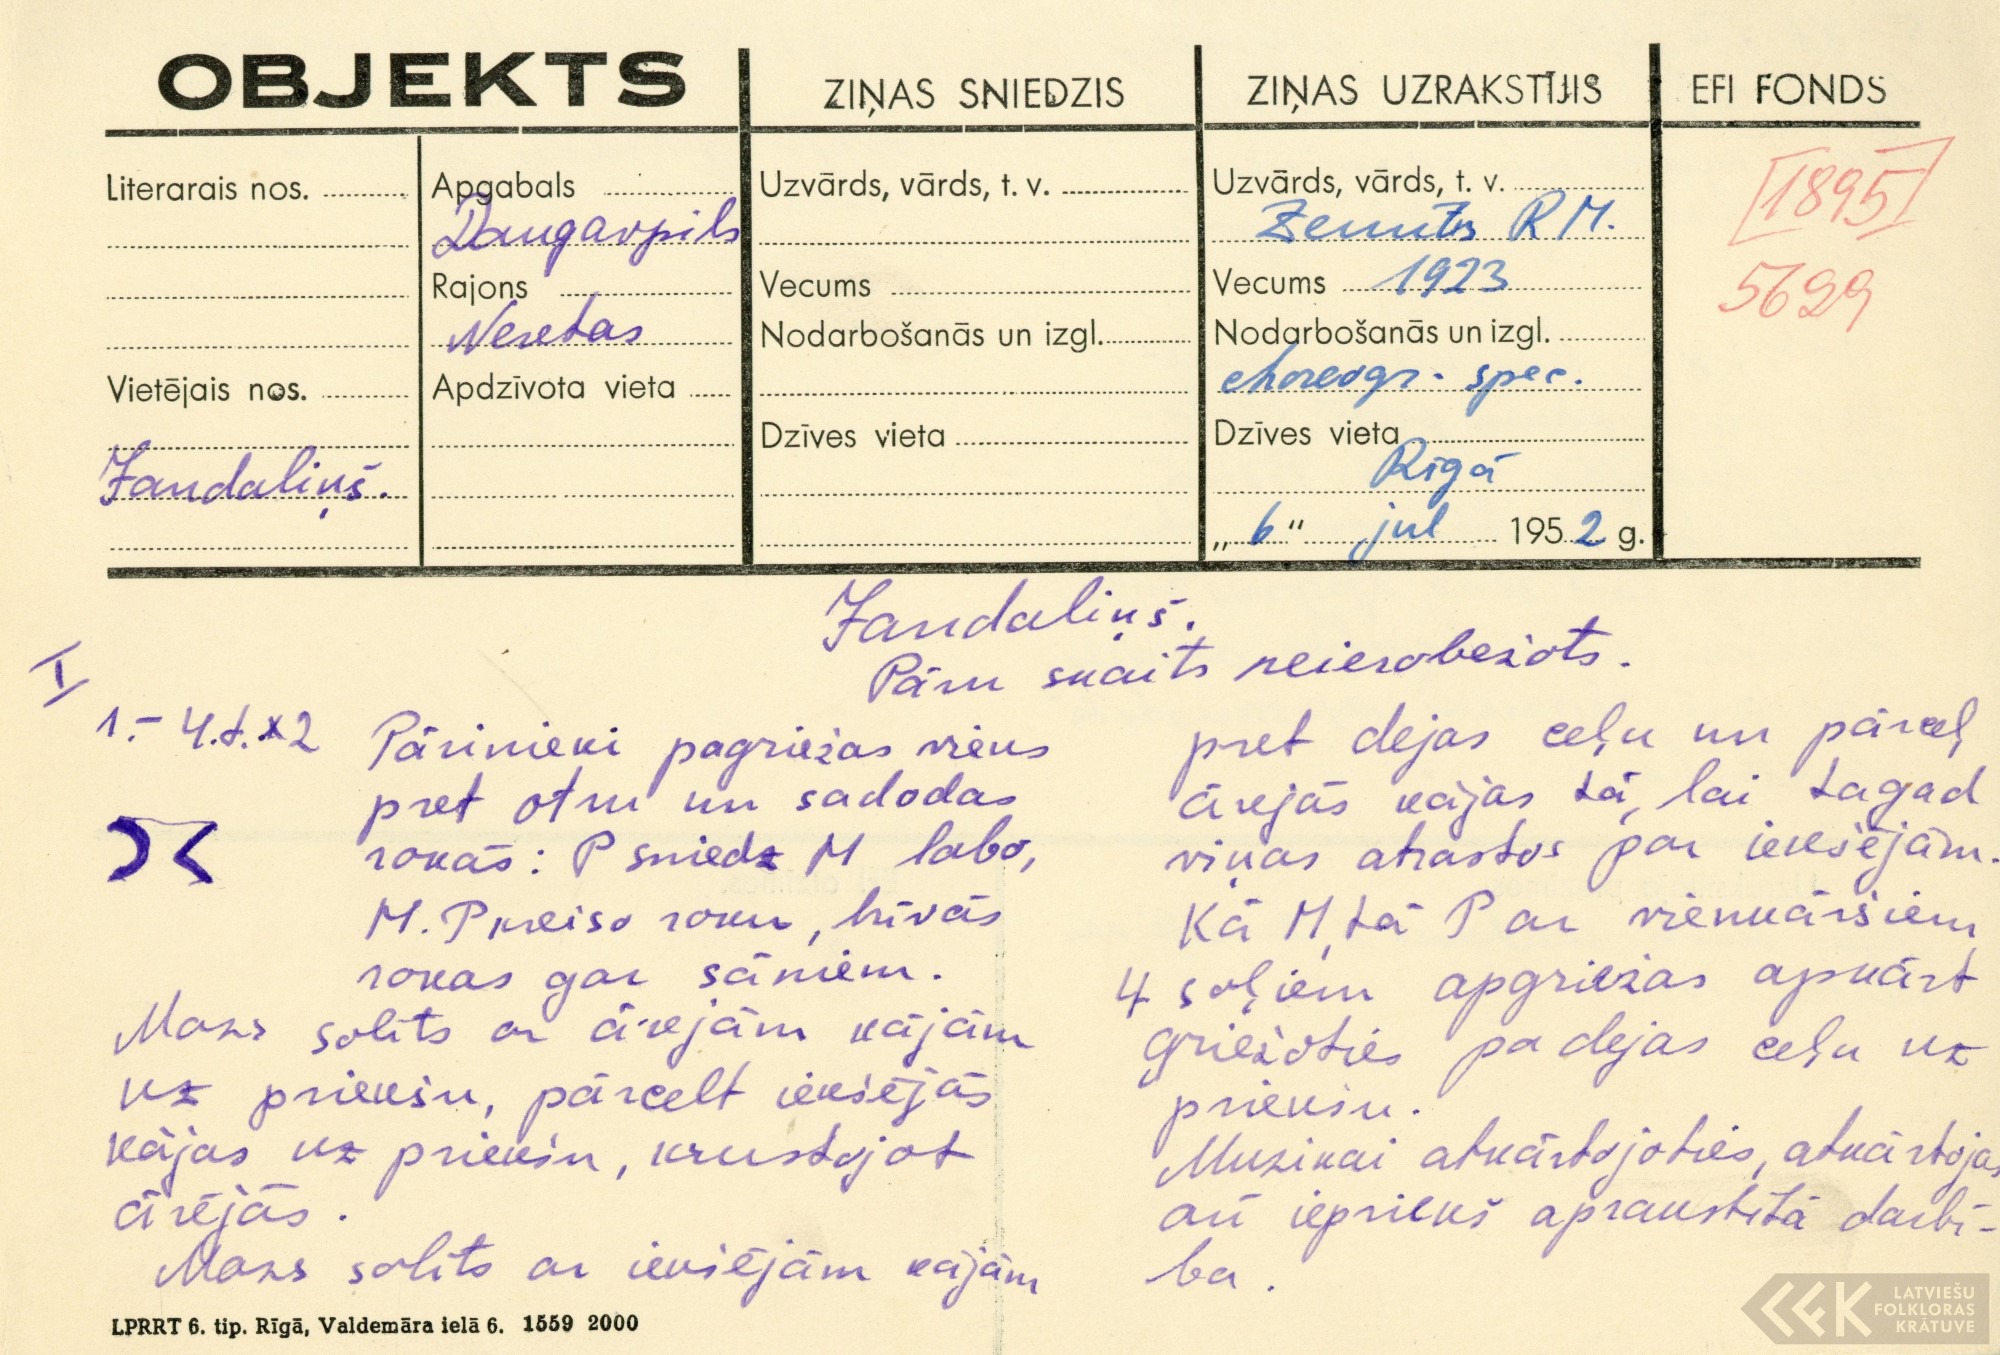 OBJEKTS
ZIŅAS SNIEDZIS
ZIŅAS UZRAKSTĪJIS
EFI FONDS
Literarais nos.
Vietējais nos.
Jandaliņš.
Apgabals
Daugavpils
Rajons
Neretas
Apdzīvota vieta
Uzvārds, vārds, t. v.
Vecums
Nodarbošanās un izgl.
Dzīves vieta
Uzvārds, vārds, t. v.
R M.
Vecums 1923
Nodarbošanās un izgl.
choreogr. spec.
Dzīves vieta
Rīgā
„ 6 “ jul 1952 g.
[1895]
5699
Jandaliņš.
Pāru skaits neierobežots.
I
1.- 4.t.x2
Pārinieki pagriežas viens
pret otru un sadodas
rokās: P sniedz M labo,
M. P kreiso roku, brīvās
rokas gar sāniem.
Mazs solīts ar ārējām kājām
uz priekšu, pārcelt iekšējās
kājas uz priekšu, krustojot
ārējās.
Mazs solīts ar iekšējām kājām
pret dejas ceļu un pārceļ
ārējās kājas tā, lai tagad
viņas atrastos par iekšējām.
Kā M, tā P ar vienkāršiem
4 soļiem apgriežas apkārt
griežoties pa dejas ceļu uz
priekšu.
Muzikai atkārtojoties, atkārtojas
arī iepriekš aprakstītā darbī-
ba.
LPRRT 6. tip. Rīgā, Valdemāra ielā 6. 1559 2000
LATVIEŠU
FOLKLORAS
KRĀTUVE